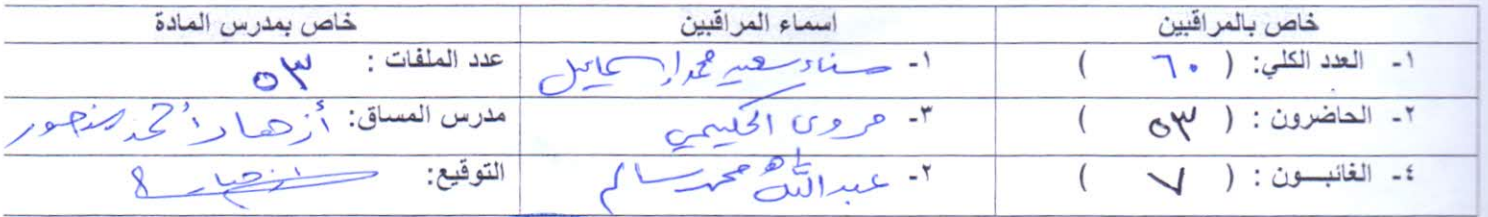 خاص بالمراقبين	اسماء المراقبين	خاص بمدرس المادة
١- العدد الكلي: ( ٦٠ )	١- سناء سعيد محمد إسماعيل	عدد الملفات : ٥٣
٢- الحاضرون : ( ٥٣ )	٣- مروى الحكيمي	مدرس المساق: أزهار أحمد منصور
٤- الغائبــون : ( ٧ )	٢- عبد الله محمد سالم	التوقيع: